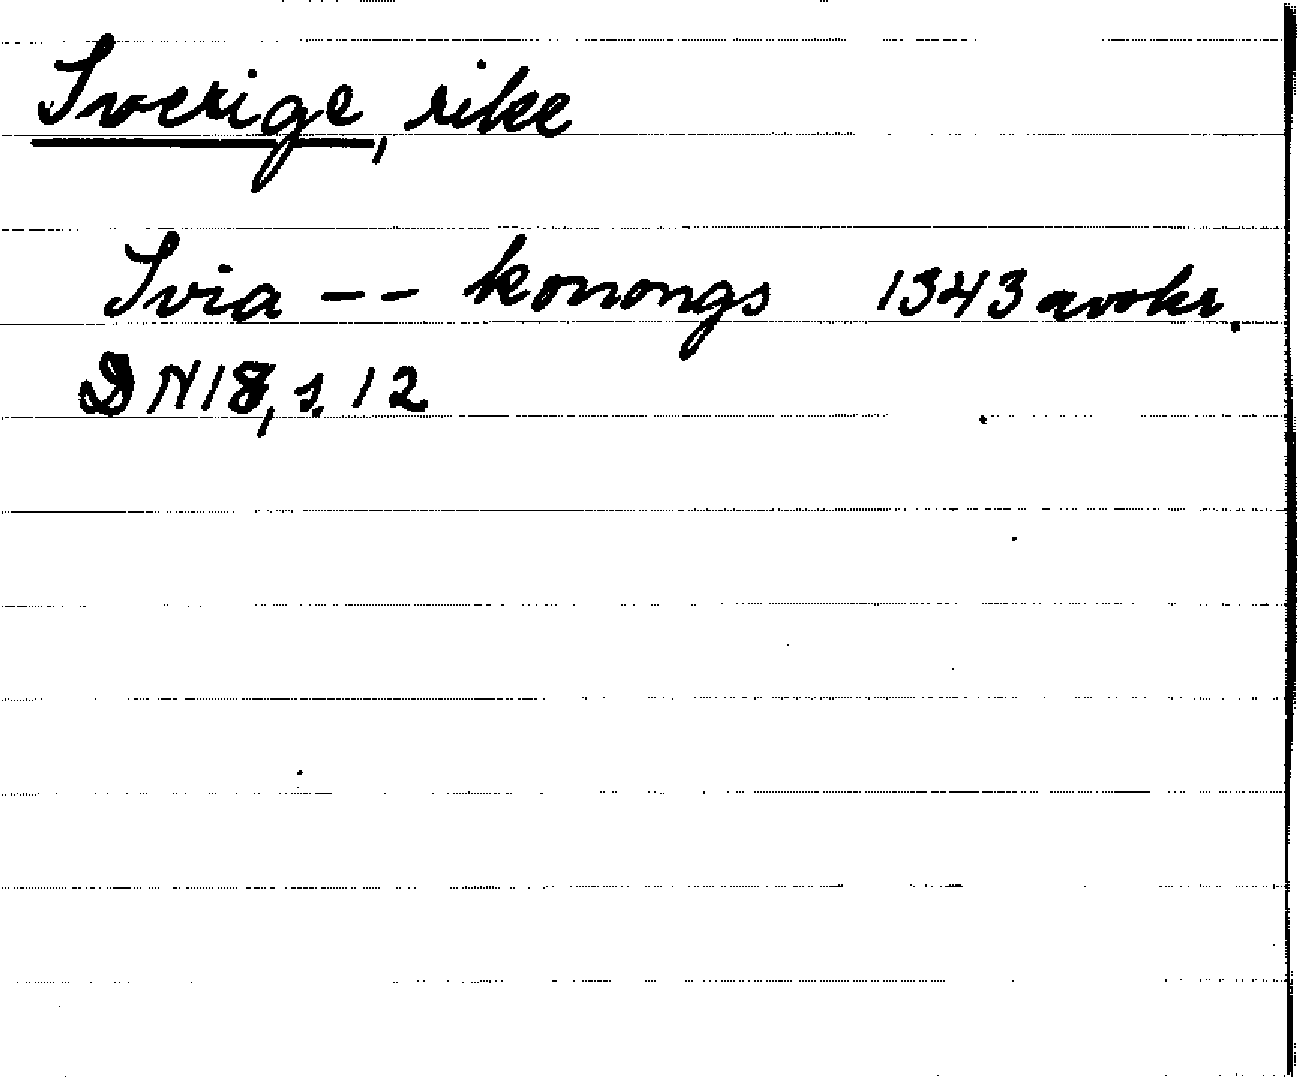 Sverige, rike
Svia -- konongs 1343 avskr.
DN18, s. 12